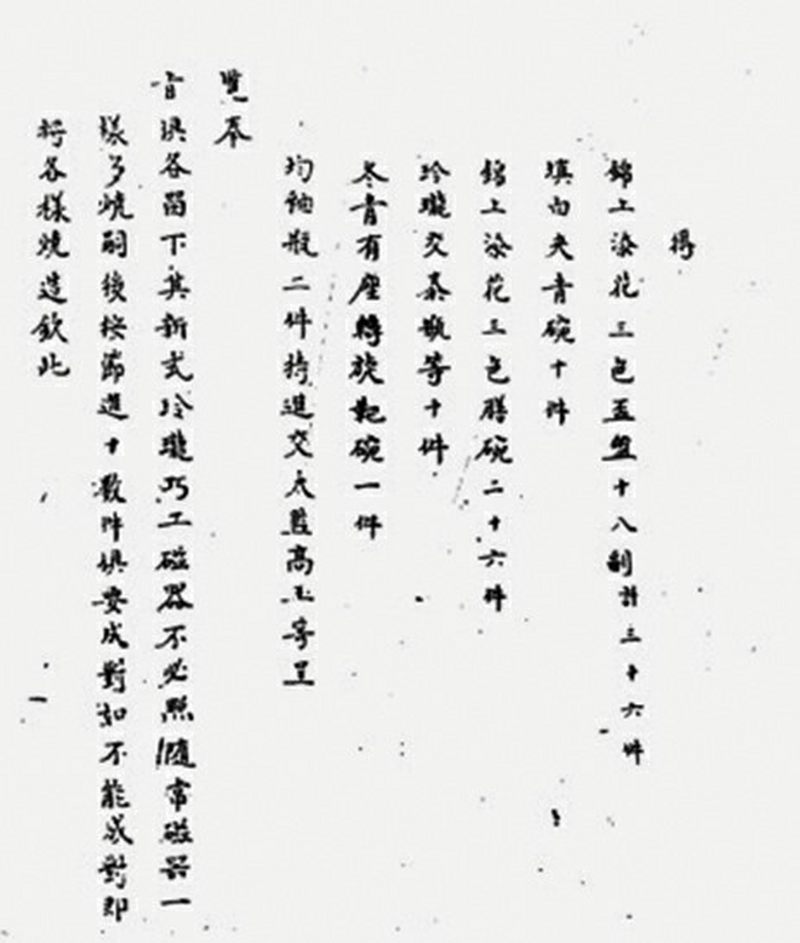 得
錦上添花三色盃盤十八副計三十六件
填白夾青碗十件
錦上添花三色膳碗二十六件
玲瓏交泰瓶等十件
冬青有座轉旋靶碗一件
均釉瓶二件持進交太監高玉等呈
覽奉
旨俱各留下其新式玲瓏巧工磁器不必照隨常磁器一
樣多燒嗣後按節進十數件俱要成對如不能成對即
將各樣燒造欽此